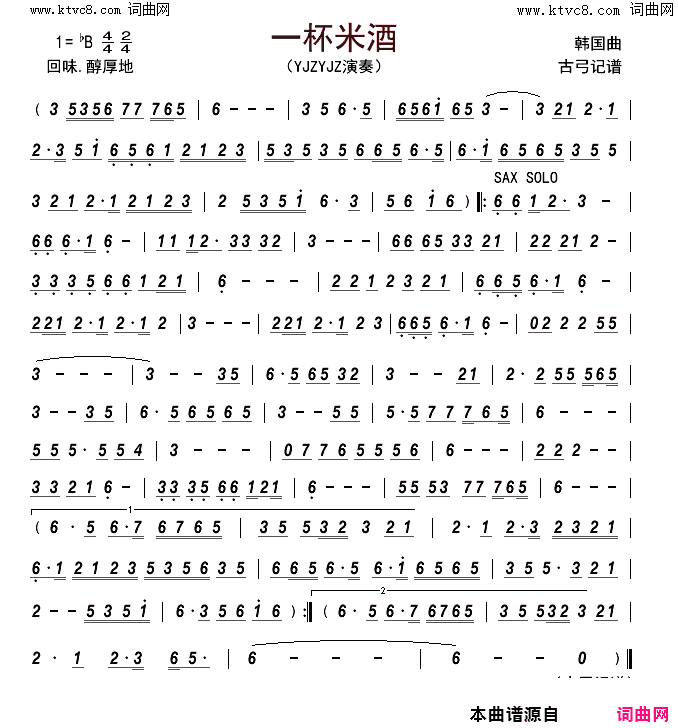 www.ktvc8.com 词曲网 www.ktvc8.com 词曲网
1=♭B 4/4 2/4 一杯米酒 韩国曲
回味.醇厚地 (YJZYJZ演奏) 古弓记谱
( 3 5356 77 765 | 6 - - - | 3 5 6·5 | 6561 65 3 - | 3 21 2·1 |
2·3 5 1 6561 2123 | 535356656 | 6·1 6565355 |
SAX SOLO
3 21 2·12123 | 2 5351 6·3 | 56 16 ) ‖: 6612· 3 - |
66 6·1 6 - | 11 12· 33 32 | 3 - - - | 66 65 33 21 | 22 21 2 - |
33 3565 121 | 6 - - - | 221 2 321 | 6665 6·1 6 - |
221 2·1 2·1 2 | 3 - - - | 221 2·1 2 3 | 666 6·1 6 - | 02 2 2 55 |
3 - - - | 3 - - 35 | 6·5 65 32 | 3 - - 21 | 2·2 55 565 |
3 - - 35 | 6·5 6565 | 3 - - 55 | 5·5 7 7 765 | 6 - - - |
5 5 5· 5 54 | 3 - - - | 0776 5556 | 6 - - - | 2 2 2 - - |
33 21 6 - | 33 35 66 121 | 6 - - - | 55 53 77 765 | 6 - - - |
1
( 6·5 6·7 6765 | 35 5352 3 21 | 2·1 2·3 2321 |
6·1 2123 5635 | 5356 5 6·1 6565 | 35 5·321 |
2
2 - - 5351 | 6·3 56 16 ) :‖ ( 6·5 6·7 6765 | 35 532 3 21 |
2·1 2·3 65· | 6 - - - | 6 - - 0 ) ‖
本曲谱源自 词曲网